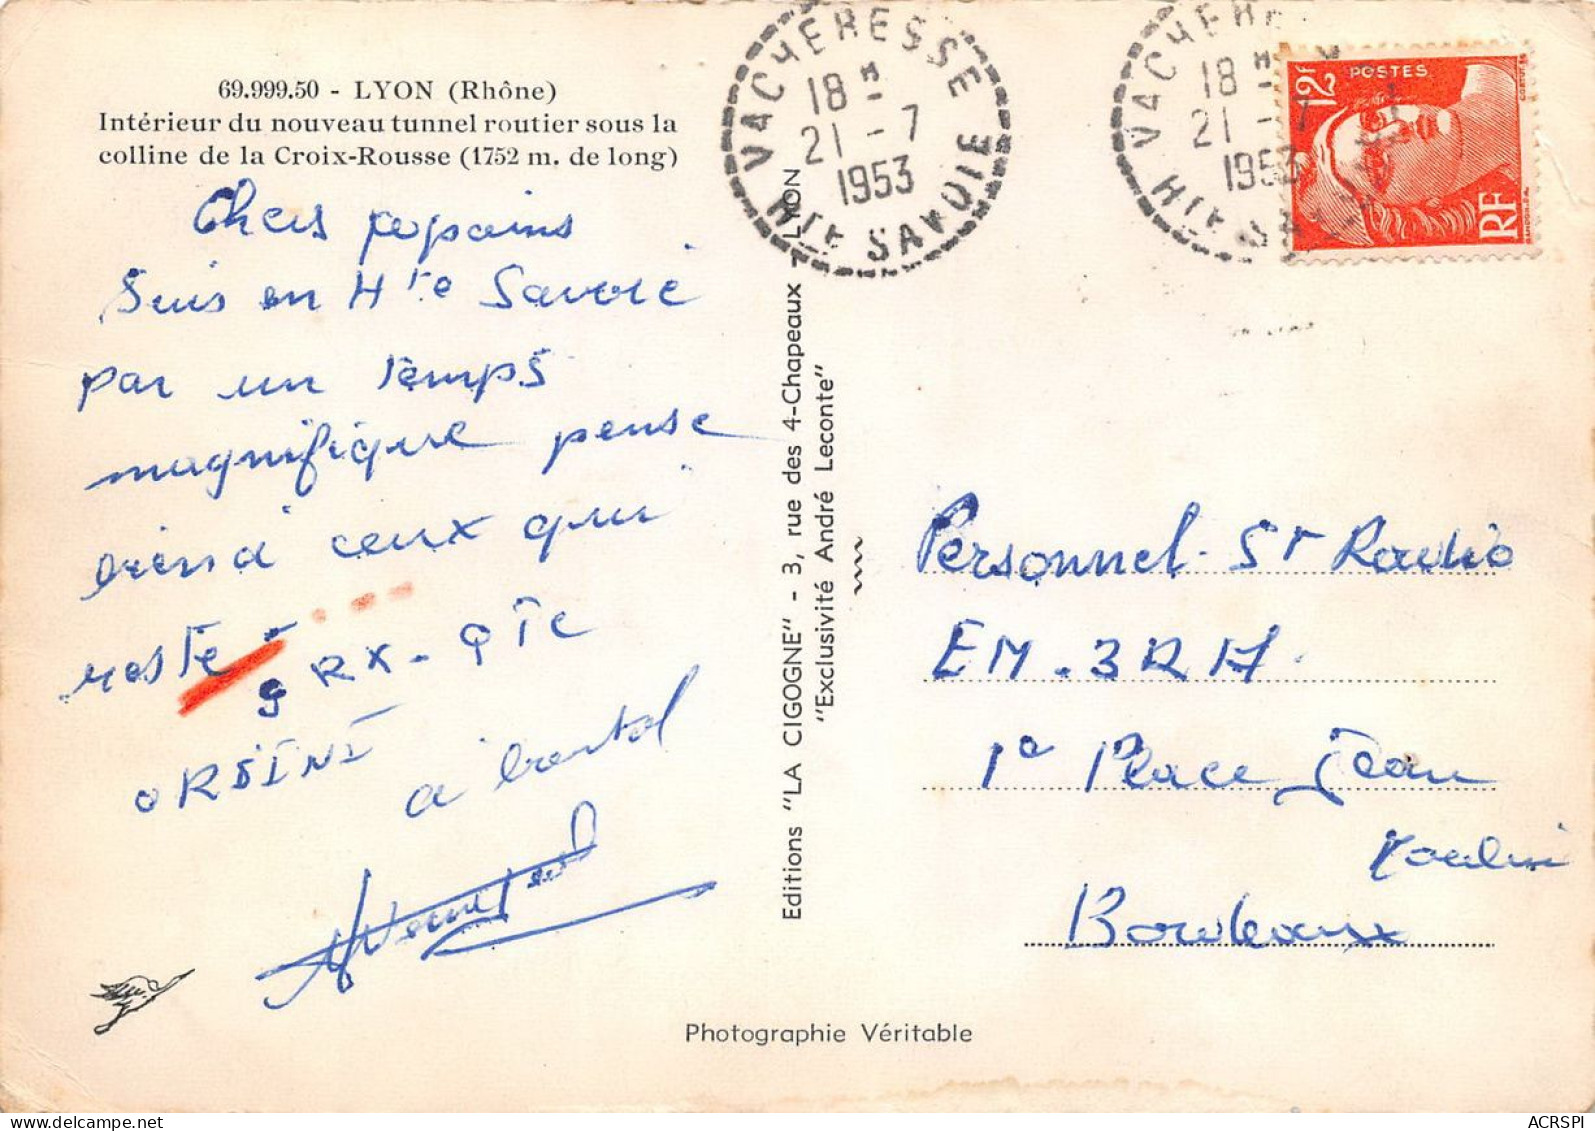 69.999.50 - LYON (Rhône)
Intérieur du nouveau tunnel routier sous la
colline de la Croix-Rousse (1752 m. de long)
Chers copains
Suis en Hte Savoie
par un temps
magnifique pense
bien à ceux qui
reste
QTC
à bientôt
Editions "LA CIGOGNE" - 3, rue des 4-Chapeaux - LYON
"Exclusivité André Leconte"
Photographie Véritable
VACHERESSE
18 H
21 - 7
1953
HTE SAVOIE
VACHERE
18 H
21 - 7
1953
HTE SA
POSTES
12F
RF
Personnel St Radio
EM. 3 RA.
1a Place Jean
Moulin
Bordeaux
ACRSPI